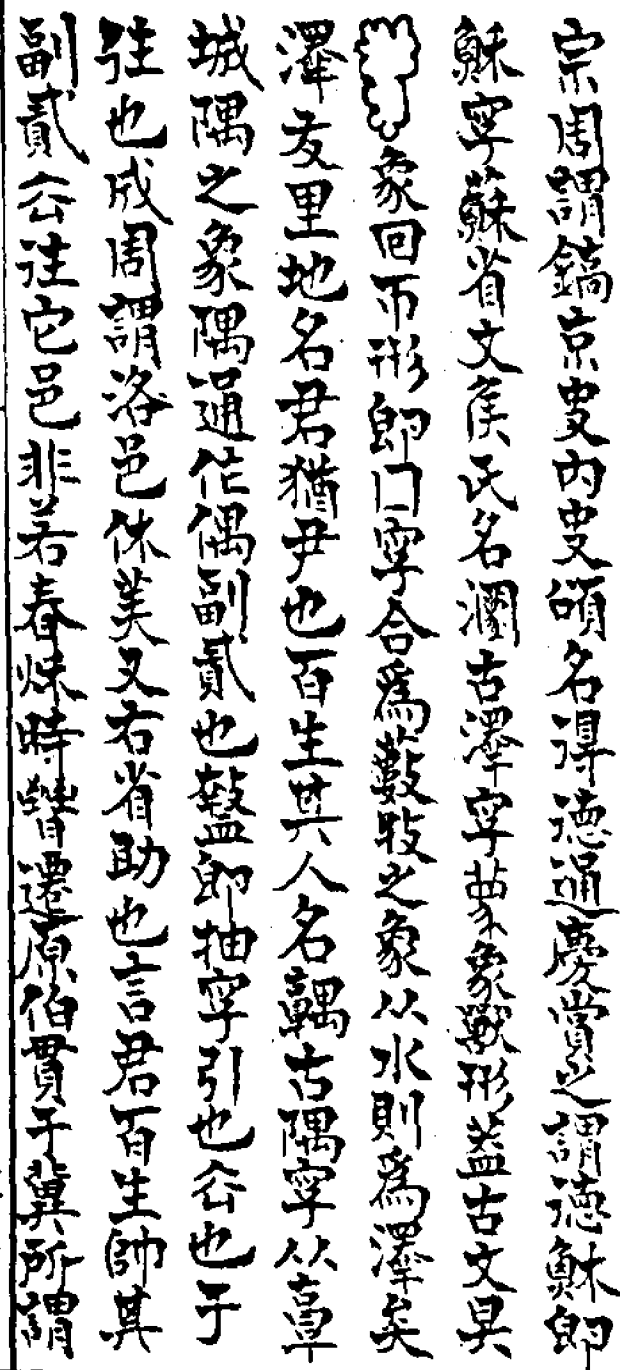 宗周謂鎬京叓内叓頌名得德通慶賞之謂德穌即
穌字蘇省文矦氏名瀾古澤字象獸形葢古文㚖
象回帀形即冂字合爲藪牧之象从水則爲澤矣
澤友里地名君猶尹也百生其人名古隅字从𩫏
城隅之象隅通作偶副貳也盩即抽字引也厺也于
往也成周謂洛邑休美又右省助也言君百生帥其
副貳厺往它邑非若春秌時晉遷原伯貫于冀所謂